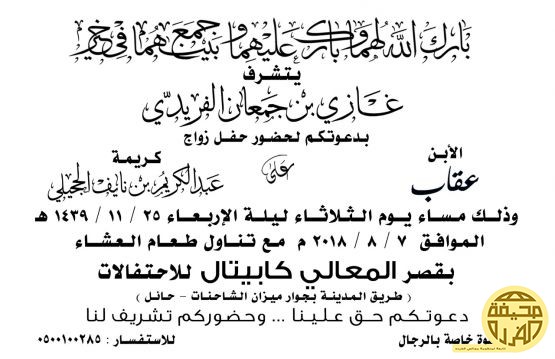 بارك الله لهما وبارك عليهما وجمع بينهما في خير
يتشرف
غازي بن جمعان الفريدي
بدعوتكم لحضور حفل زواج
الأبن
عقاب
على
كريمة
عبدالكريم بن نايف الجحيلي
وذلك مساء يوم الثلاثاء ليلة الإربعاء ٢٥ / ١١ / ١٤٣٩ هـ
الموافق ٧ / ٨ / ٢٠١٨ م مع تناول طعام العشاء
بقصر المعالي كابيتال للاحتفالات
( طريق المدينة بجوار ميزان الشاحنات - حائل )
دعوتكم حق علينا ... وحضوركم تشريف لنا
خاصة بالرجال
للاستفسار : ٠٥٠٠١٠٠٢٨٥
صحيفة